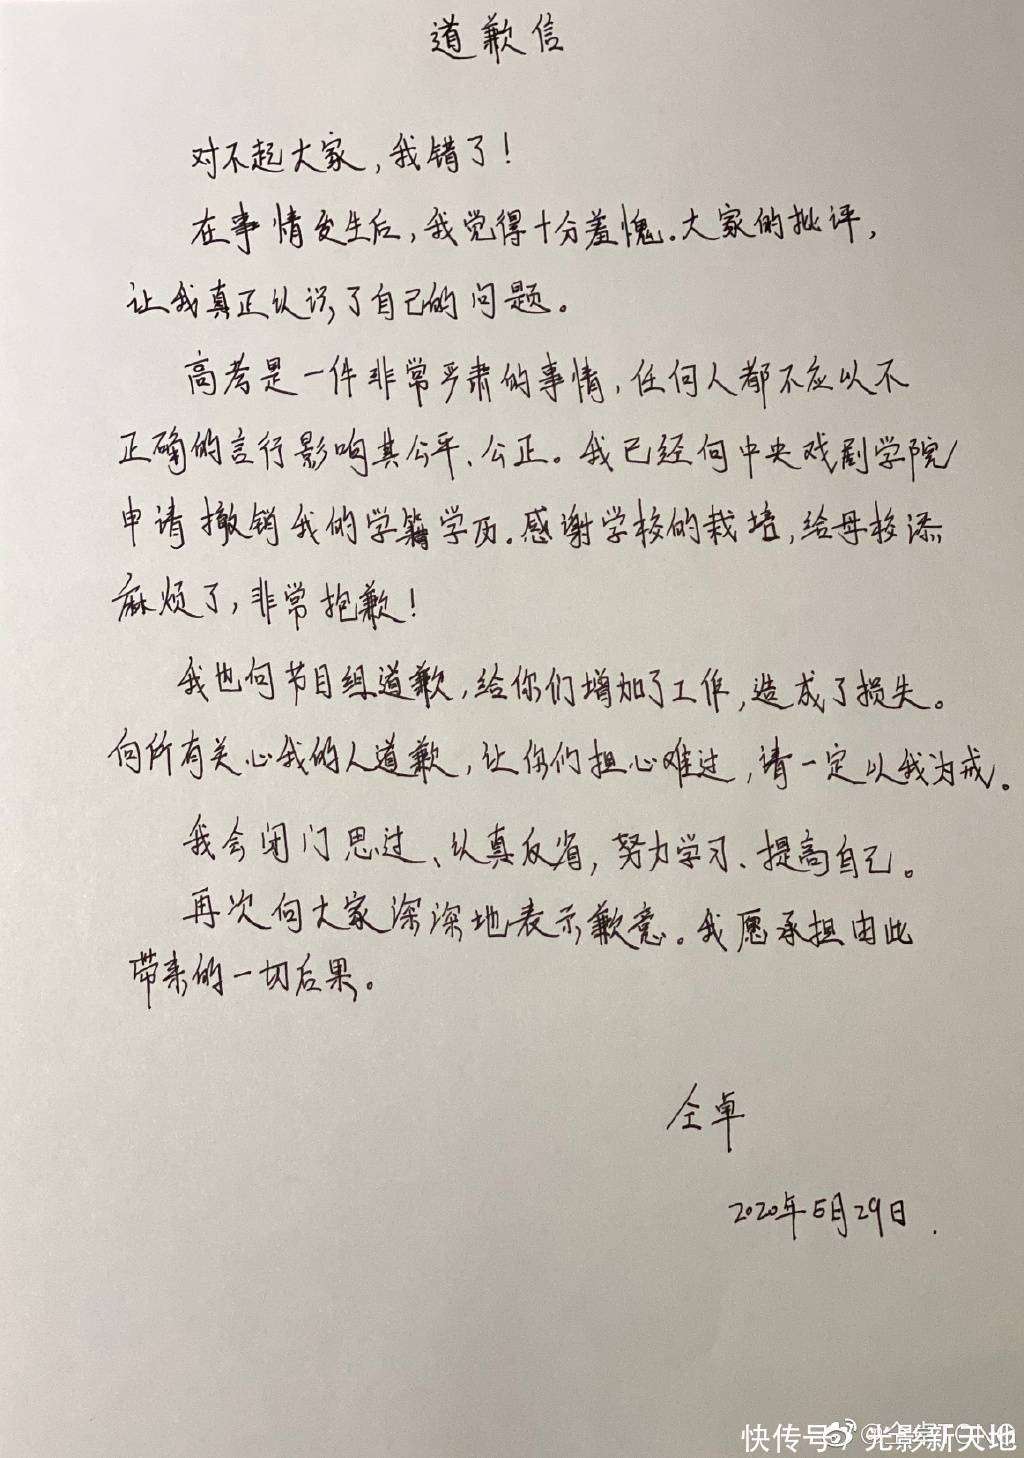 道歉信
对不起大家,我错了!
在事情发生后,我觉得十分羞愧.大家的批评,
让我真正认识了自己的问题。
高考是一件非常严肃的事情,任何人都不应以不
正确的言行影响其公平、公正。我已经向中央戏剧学院
申请撤销我的学籍学历.感谢学校的栽培,给母校添
麻烦了,非常抱歉!
我也向节目组道歉,给你们增加了工作,造成了损失。
向所有关心我的人道歉,让你们担心难过,请一定以我为戒。
我会闭门思过、认真反省,努力学习、提高自己。
再次向大家深深地表示歉意。我愿承担由此
带来的一切后果。
仝卓
2020年5月29日.
快传号 / 光影新天地